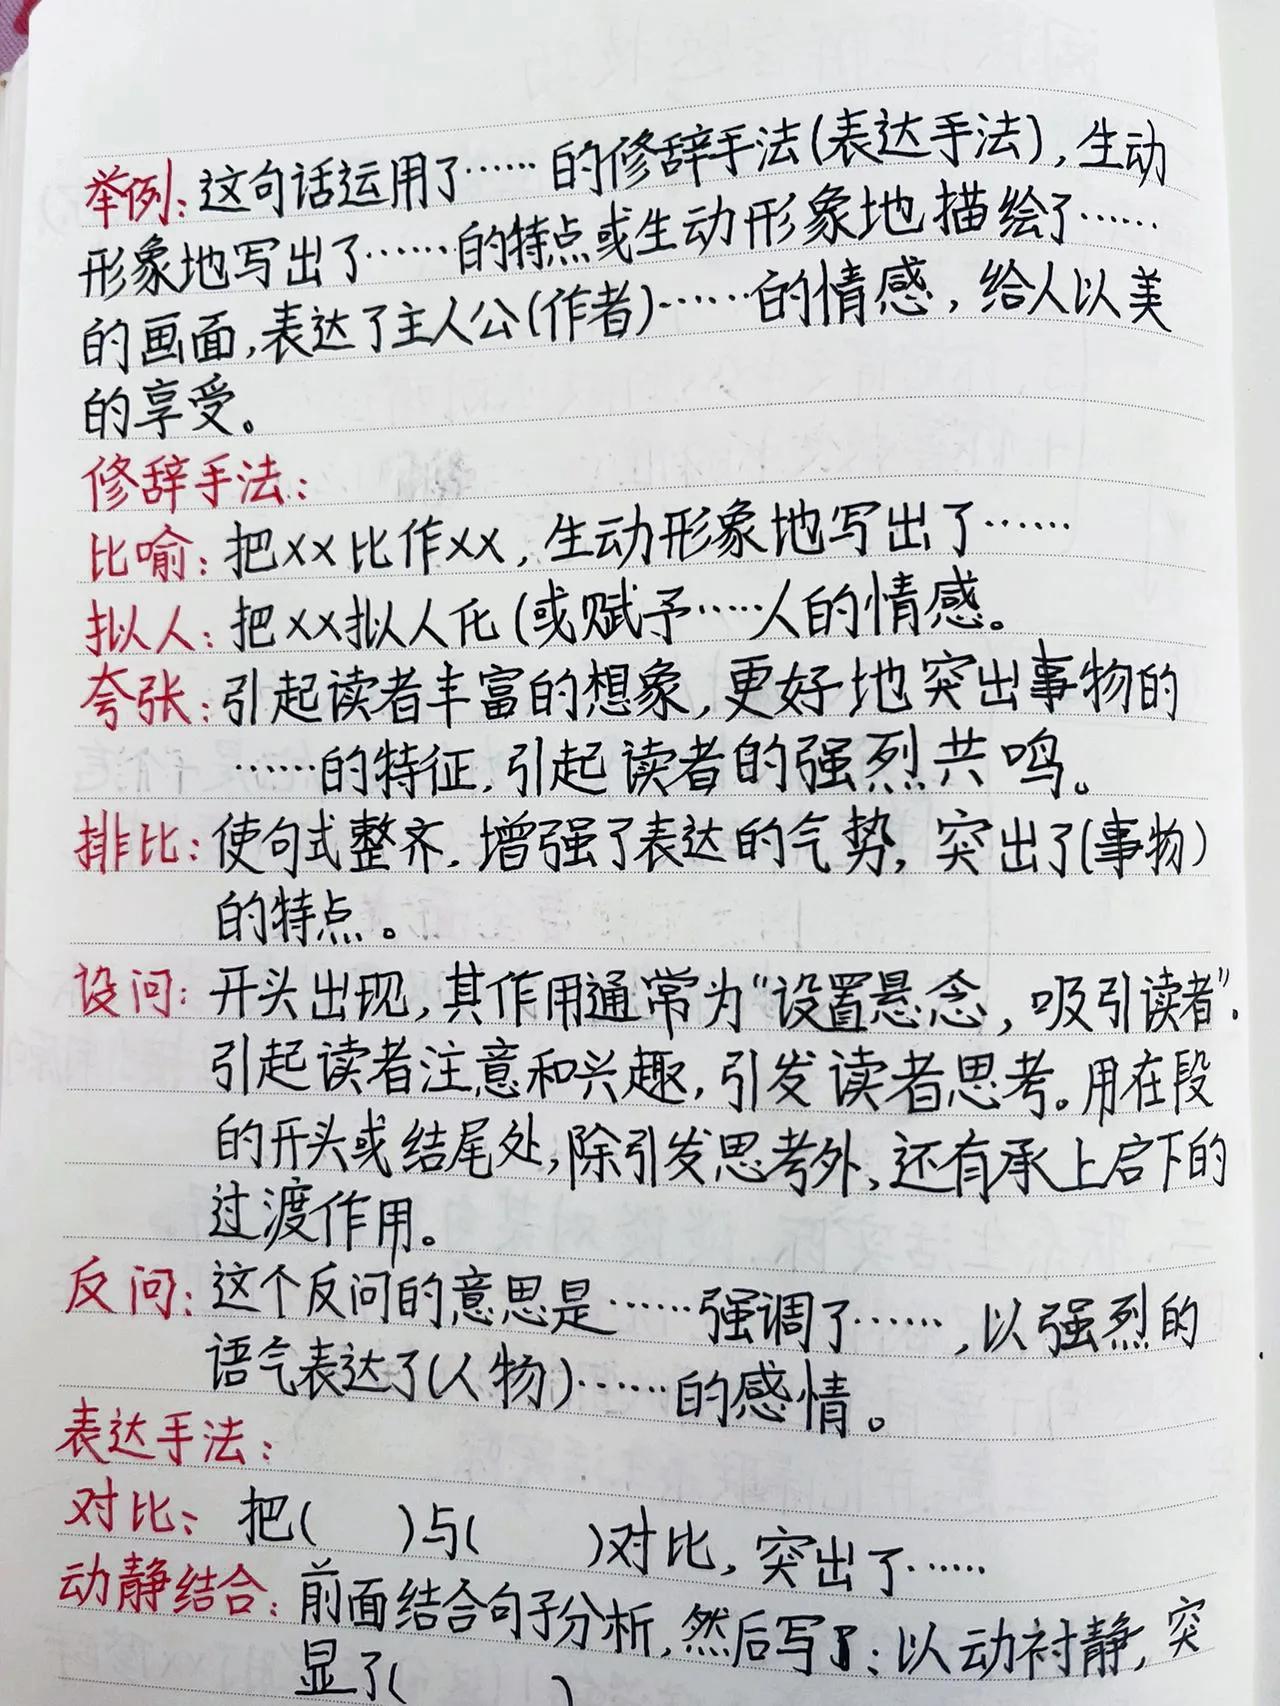 举例:这句话运用了……的修辞手法(表达手法),生动
形象地写出了……的特点或生动形象地描绘了……
的画面,表达了主人公(作者)……的情感,给人以美
的享受。
修辞手法:
比喻:把xx比作xx,生动形象地写出了……
拟人:把xx拟人化(或赋予……人的情感。
夸张:引起读者丰富的想象,更好地突出事物的
……的特征,引起读者的强烈共鸣。
排比:使句式整齐,增强了表达的气势,突出了(事物)
的特点。
设问:开头出现,其作用通常为“设置悬念,吸引读者”.
引起读者注意和兴趣,引发读者思考。用在段
的开头或结尾处,除引发思考外,还有承上启下的
过渡作用。
反问:这个反问的意思是……强调了……,以强烈的
语气表达了(人物)……的感情。
表达手法:
对比:把( )与( )对比,突出了……
动静结合:前面结合句子分析,然后写了:以动衬静,突
显了( )